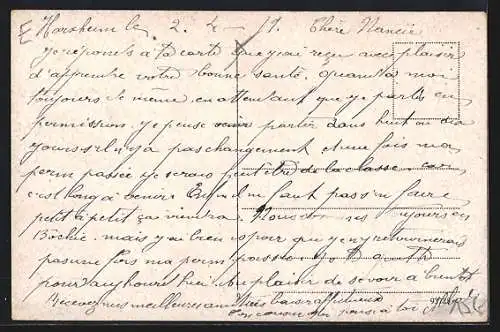 Horsheim le 2. 4 - 19. Chère Nancie
je réponds à ta carte que j'ai reçu avec plaisir
d'apprendre votre bonne santé. Quand à moi
toujours le même, en attendant que je partes en
permission. je pense partir dans huit ou dix
jours s'il n'y a pas changement et une fois ma
perm passée je serais peut être de la classe. car
c'est long à venir. Enfin il n'faut pas s'en faire
petit à petit ça viendra. Nous
Bôchie. mais j'ai bien espoir que je n'y retournerais
pas une fois ma perm passée.
pour aujourd'hui. Au plaisir de se voir à bientôt
Recevez mes meilleures amitiés baisers affectueux
pense à toi